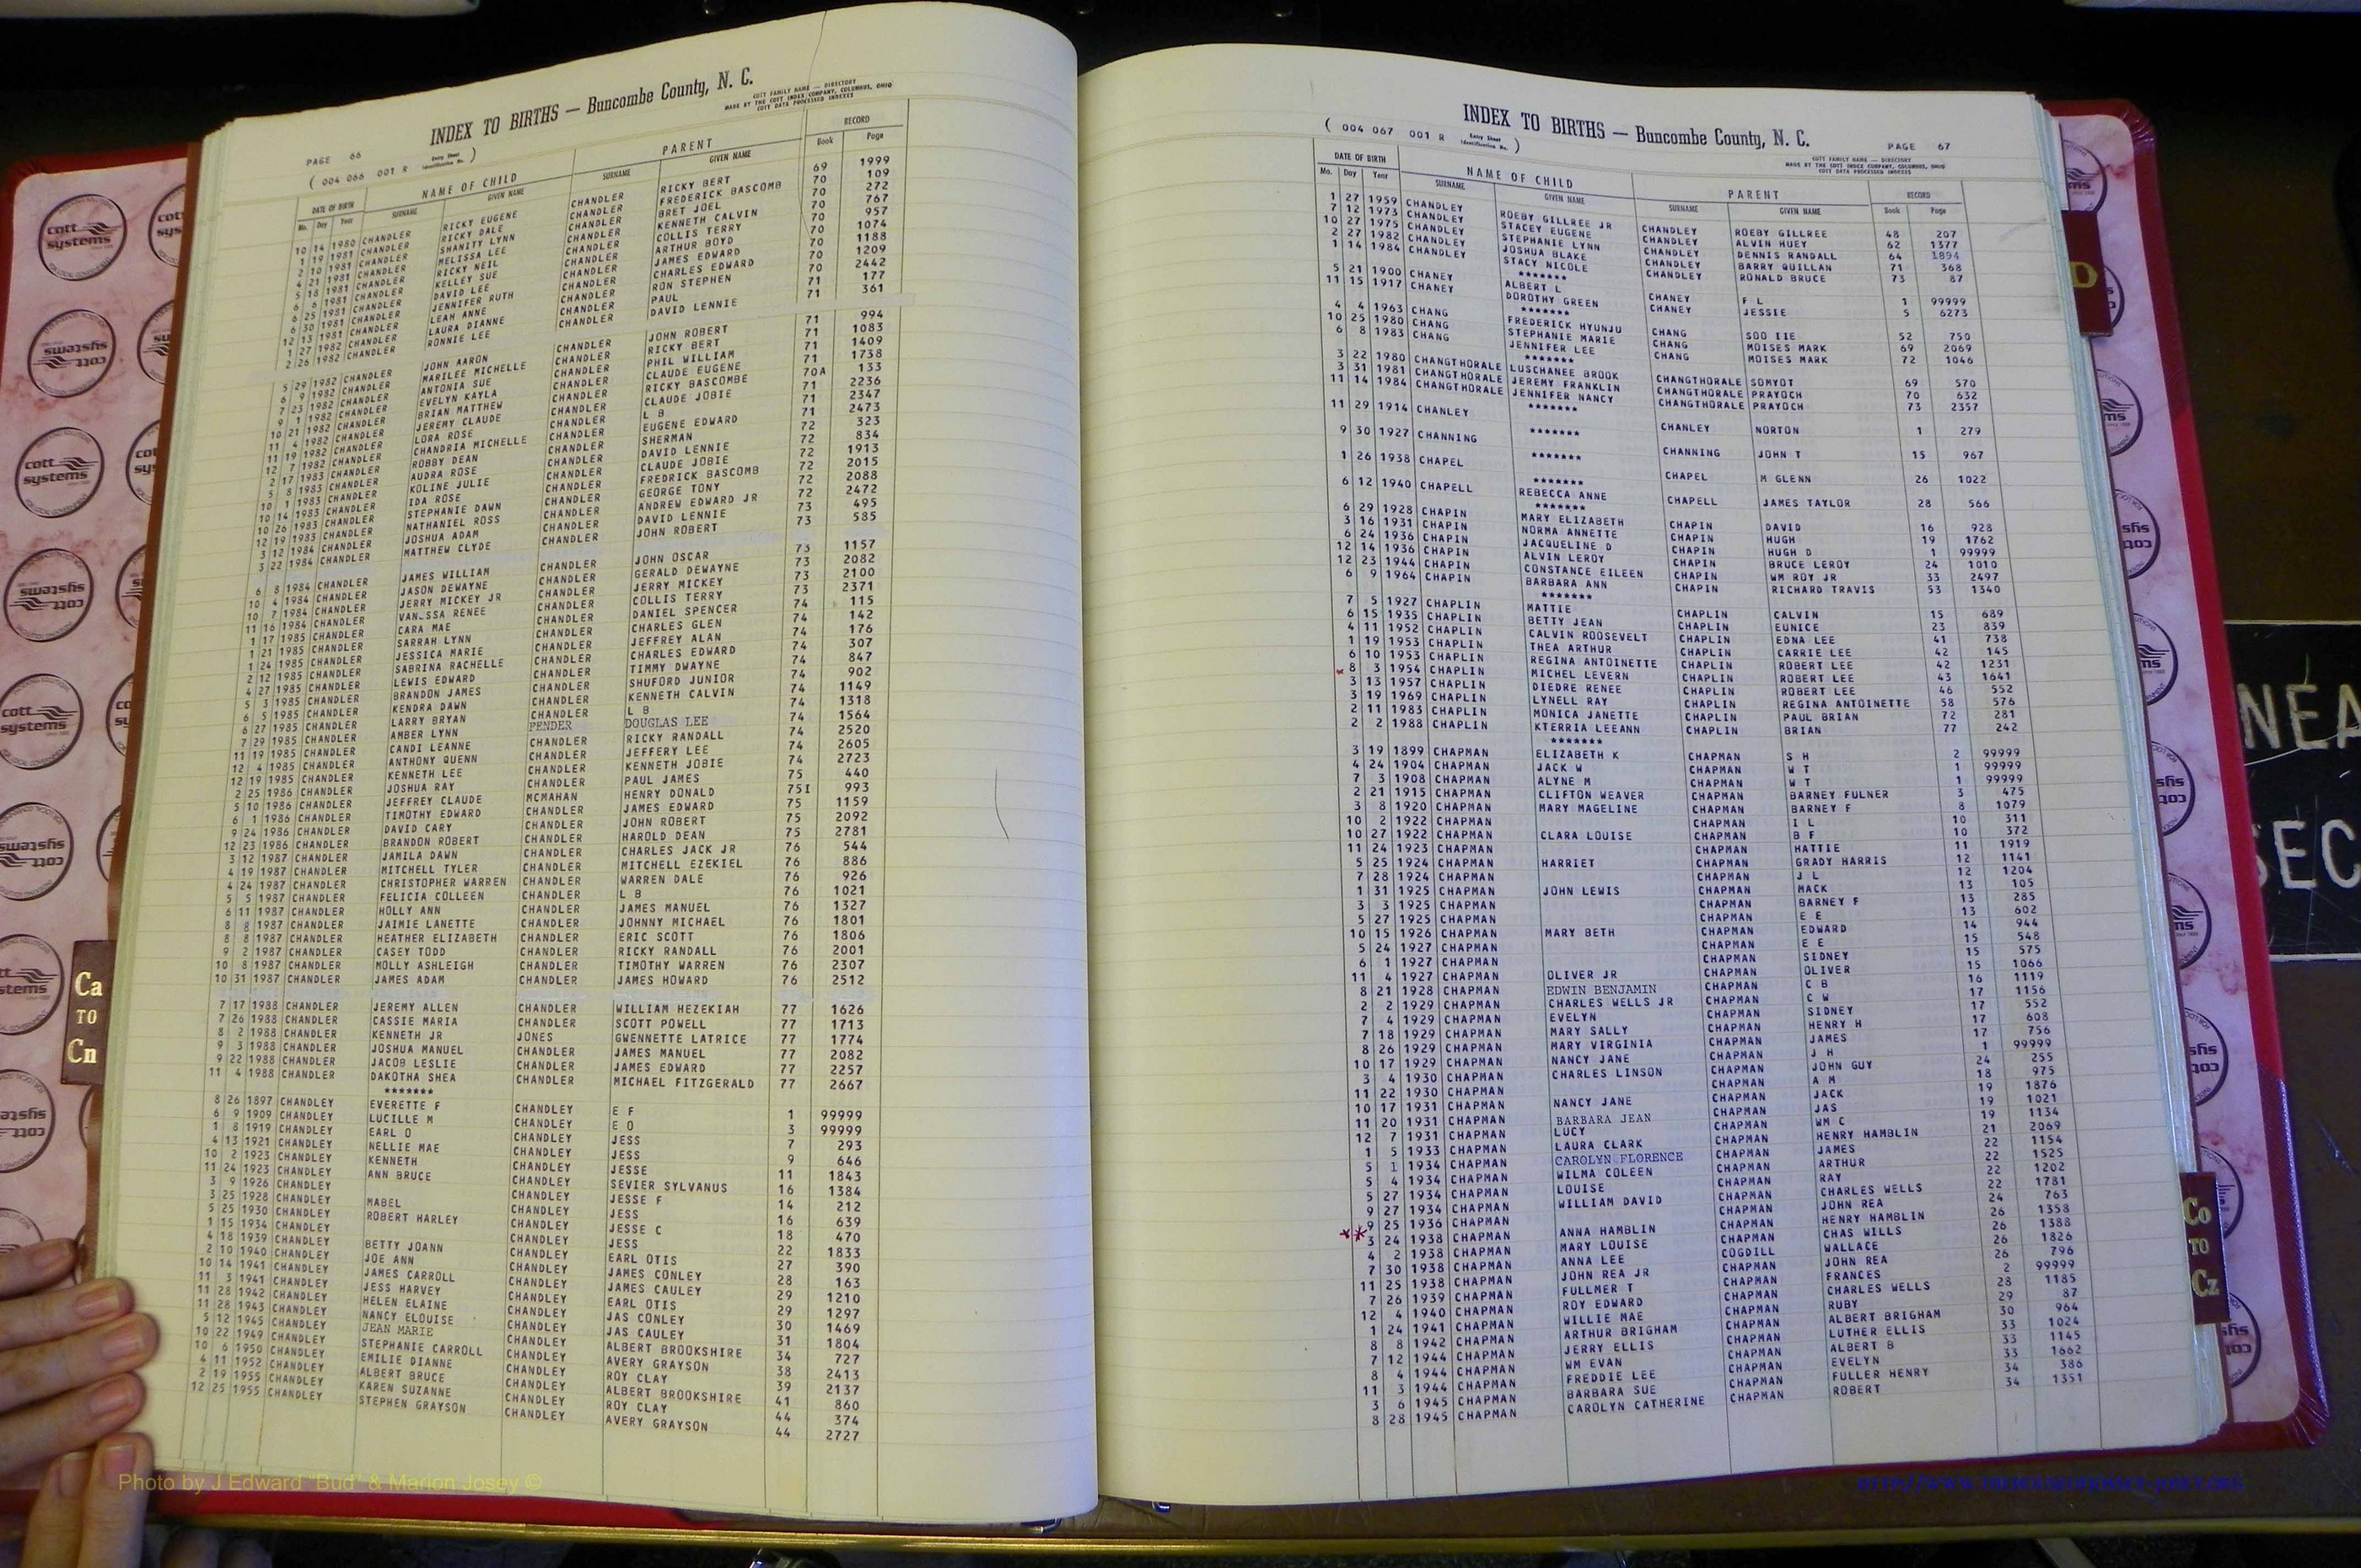 INDEX TO BIRTHS — Buncombe County, N. C.
COTT FAMILY NAME — DIRECTORY
MADE BY THE COTT INDEX COMPANY, COLUMBUS, OHIO
COTT DATA PROCESSED INDEXES
PAGE 66
( 004 066 001 R Entry Sheet Identification No. )
DATE OF BIRTH NAME OF CHILD PARENT RECORD
Mo. Day Year SURNAME GIVEN NAME SURNAME GIVEN NAME Book Page
10 14 1980 CHANDLER RICKY EUGENE CHANDLER RICKY BERT 69 1999
1 19 1981 CHANDLER RICKY DALE CHANDLER FREDERICK BASCOMB 70 109
2 10 1981 CHANDLER SHANITY LYNN CHANDLER BRET JOEL 70 272
4 21 1981 CHANDLER MELISSA LEE CHANDLER KENNETH CALVIN 70 767
5 18 1981 CHANDLER RICKY NEIL CHANDLER COLLIS TERRY 70 957
6 6 1981 CHANDLER KELLEY SUE CHANDLER ARTHUR BOYD 70 1074
6 25 1981 CHANDLER DAVID LEE CHANDLER JAMES EDWARD 70 1188
6 30 1981 CHANDLER JENNIFER RUTH CHANDLER CHARLES EDWARD 70 1209
12 13 1981 CHANDLER LEAH ANNE CHANDLER RON STEPHEN 70 2442
1 27 1982 CHANDLER LAURA DIANNE CHANDLER PAUL 71 177
2 26 1982 CHANDLER RONNIE LEE CHANDLER DAVID LENNIE 71 361
5 29 1982 CHANDLER JOHN AARON CHANDLER JOHN ROBERT 71 994
6 9 1982 CHANDLER MARILEE MICHELLE CHANDLER RICKY BERT 71 1083
7 23 1982 CHANDLER ANTONIA SUE CHANDLER PHIL WILLIAM 71 1409
9 1 1982 CHANDLER EVELYN KAYLA CHANDLER CLAUDE EUGENE 71 1738
10 21 1982 CHANDLER BRIAN MATTHEW CHANDLER RICKY BASCOMBE 70A 133
11 4 1982 CHANDLER JEREMY CLAUDE CHANDLER CLAUDE JOBIE 71 2236
11 19 1982 CHANDLER LORA ROSE CHANDLER L B 71 2347
12 7 1982 CHANDLER CHANDRIA MICHELLE CHANDLER EUGENE EDWARD 71 2473
2 17 1983 CHANDLER ROBBY DEAN CHANDLER SHERMAN 72 323
5 8 1983 CHANDLER AUDRA ROSE CHANDLER DAVID LENNIE 72 834
10 1 1983 CHANDLER KOLINE JULIE CHANDLER CLAUDE JOBIE 72 1913
10 14 1983 CHANDLER IDA ROSE CHANDLER FREDRICK BASCOMB 72 2015
10 26 1983 CHANDLER STEPHANIE DAWN CHANDLER GEORGE TONY 72 2088
12 19 1983 CHANDLER NATHANIEL ROSS CHANDLER ANDREW EDWARD JR 72 2472
3 12 1984 CHANDLER JOSHUA ADAM CHANDLER DAVID LENNIE 73 495
3 22 1984 CHANDLER MATTHEW CLYDE CHANDLER JOHN ROBERT 73 585
6 8 1984 CHANDLER JAMES WILLIAM CHANDLER JOHN OSCAR 73 1157
10 4 1984 CHANDLER JASON DEWAYNE CHANDLER GERALD DEWAYNE 73 2082
10 7 1984 CHANDLER JERRY MICKEY JR CHANDLER JERRY MICKEY 73 2100
11 16 1984 CHANDLER RENEE CHANDLER COLLIS TERRY 73 2371
1 17 1985 CHANDLER CARA MAE CHANDLER DANIEL SPENCER 74 115
1 21 1985 CHANDLER SARRAH LYNN CHANDLER CHARLES GLEN 74 142
1 24 1985 CHANDLER JESSICA MARIE CHANDLER JEFFREY ALAN 74 176
2 12 1985 CHANDLER SABRINA RACHELLE CHANDLER CHARLES EDWARD 74 307
4 27 1985 CHANDLER LEWIS EDWARD CHANDLER TIMMY DWAYNE 74 847
5 3 1985 CHANDLER BRANDON JAMES CHANDLER SHUFORD JUNIOR 74 902
6 5 1985 CHANDLER KENDRA DAWN CHANDLER KENNETH CALVIN 74 1149
6 27 1985 CHANDLER LARRY BRYAN CHANDLER L B 74 1318
7 29 1985 CHANDLER AMBER LYNN FENDER DOUGLAS LEE 74 1564
11 19 1985 CHANDLER CANDI LEANNE CHANDLER RICKY RANDALL 74 2520
12 4 1985 CHANDLER ANTHONY QUENN CHANDLER JEFFERY LEE 74 2605
12 19 1985 CHANDLER KENNETH LEE CHANDLER KENNETH JOBIE 74 2723
2 25 1986 CHANDLER JOSHUA RAY CHANDLER PAUL JAMES 75 440
5 10 1986 CHANDLER JEFFREY CLAUDE MCMAHAN HENRY DONALD 75I 993
6 1 1986 CHANDLER TIMOTHY EDWARD CHANDLER JAMES EDWARD 75 1159
9 24 1986 CHANDLER DAVID CARY CHANDLER JOHN ROBERT 75 2092
12 23 1986 CHANDLER BRANDON ROBERT CHANDLER HAROLD DEAN 75 2781
3 12 1987 CHANDLER JAMILA DAWN CHANDLER CHARLES JACK JR 76 544
4 19 1987 CHANDLER MITCHELL TYLER CHANDLER MITCHELL EZEKIEL 76 886
4 24 1987 CHANDLER CHRISTOPHER WARREN CHANDLER WARREN DALE 76 926
5 5 1987 CHANDLER FELICIA COLLEEN CHANDLER L B 76 1021
6 11 1987 CHANDLER HOLLY ANN CHANDLER JAMES MANUEL 76 1327
8 8 1987 CHANDLER JAIMIE LANETTE CHANDLER JOHNNY MICHAEL 76 1801
8 8 1987 CHANDLER HEATHER ELIZABETH CHANDLER ERIC SCOTT 76 1806
9 2 1987 CHANDLER CASEY TODD CHANDLER RICKY RANDALL 76 2001
10 8 1987 CHANDLER MOLLY ASHLEIGH CHANDLER TIMOTHY WARREN 76 2307
10 31 1987 CHANDLER JAMES ADAM CHANDLER JAMES HOWARD 76 2512
7 17 1988 CHANDLER JEREMY ALLEN CHANDLER WILLIAM HEZEKIAH 77 1626
7 26 1988 CHANDLER CASSIE MARIA CHANDLER SCOTT POWELL 77 1713
8 2 1988 CHANDLER KENNETH JR JONES GWENNETTE LATRICE 77 1774
9 3 1988 CHANDLER JOSHUA MANUEL CHANDLER JAMES MANUEL 77 2082
9 22 1988 CHANDLER JACOB LESLIE CHANDLER JAMES EDWARD 77 2257
11 4 1988 CHANDLER DAKOTHA SHEA CHANDLER MICHAEL FITZGERALD 77 2667
*******
8 26 1897 CHANDLEY EVERETTE F CHANDLEY E F 1 99999
6 9 1909 CHANDLEY LUCILLE M CHANDLEY E O 3 99999
1 8 1919 CHANDLEY EARL O CHANDLEY JESS 7 293
4 13 1921 CHANDLEY NELLIE MAE CHANDLEY JESS 9 646
10 2 1923 CHANDLEY KENNETH CHANDLEY JESSE 11 1843
11 24 1923 CHANDLEY ANN BRUCE CHANDLEY SEVIER SYLVANUS 16 1384
3 9 1926 CHANDLEY CHANDLEY JESSE F 14 212
3 25 1928 CHANDLEY MABEL CHANDLEY JESS 16 639
5 25 1930 CHANDLEY ROBERT HARLEY CHANDLEY JESSE C 18 470
1 15 1934 CHANDLEY CHANDLEY JESS 22 1833
4 18 1939 CHANDLEY BETTY JOANN CHANDLEY EARL OTIS 27 390
2 10 1940 CHANDLEY JOE ANN CHANDLEY JAMES CONLEY 28 163
10 14 1941 CHANDLEY JAMES CARROLL CHANDLEY JAMES CAULEY 29 1210
11 3 1941 CHANDLEY JESS HARVEY CHANDLEY EARL OTIS 29 1297
11 28 1942 CHANDLEY HELEN ELAINE CHANDLEY JAS CONLEY 30 1469
11 28 1943 CHANDLEY NANCY ELOUISE CHANDLEY JAS CAULEY 31 1804
5 12 1945 CHANDLEY JEAN MARIE CHANDLEY ALBERT BROOKSHIRE 34 727
10 22 1949 CHANDLEY STEPHANIE CARROLL CHANDLEY AVERY GRAYSON 38 2413
10 6 1950 CHANDLEY EMILIE DIANNE CHANDLEY ROY CLAY 39 2137
4 11 1952 CHANDLEY ALBERT BRUCE CHANDLEY ALBERT BROOKSHIRE 41 860
2 19 1955 CHANDLEY KAREN SUZANNE CHANDLEY ROY CLAY 44 374
12 25 1955 CHANDLEY STEPHEN GRAYSON CHANDLEY AVERY GRAYSON 44 2727
INDEX TO BIRTHS — Buncombe County, N. C.
( 004 067 001 R Entry Sheet Identification No. )
PAGE 67
COTT FAMILY NAME — DIRECTORY
MADE BY THE COTT INDEX COMPANY, COLUMBUS, OHIO
COTT DATA PROCESSED INDEXES
DATE OF BIRTH NAME OF CHILD PARENT RECORD
Mo. Day Year SURNAME GIVEN NAME SURNAME GIVEN NAME Book Page
1 27 1959 CHANDLEY ROEBY GILLREE JR CHANDLEY ROEBY GILLREE 48 207
7 12 1973 CHANDLEY STACEY EUGENE CHANDLEY ALVIN HUEY 62 1377
10 27 1975 CHANDLEY STEPHANIE LYNN CHANDLEY DENNIS RANDALL 64 1894
2 27 1982 CHANDLEY JOSHUA BLAKE CHANDLEY BARRY QUILLAN 71 368
1 14 1984 CHANDLEY STACY NICOLE CHANDLEY RONALD BRUCE 73 87
*******
5 21 1900 CHANEY ALBERT L CHANEY F L 1 99999
11 15 1917 CHANEY DOROTHY GREEN CHANEY JESSIE 5 6273
*******
4 4 1963 CHANG FREDERICK HYUNJU CHANG SOO IIE 52 750
10 25 1980 CHANG STEPHANIE MARIE CHANG MOISES MARK 69 2069
6 8 1983 CHANG JENNIFER LEE CHANG MOISES MARK 72 1046
*******
3 22 1980 CHANGTHORALE LUSCHANEE BROOK CHANGTHORALE SOMYOT 69 570
3 31 1981 CHANGTHORALE JEREMY FRANKLIN CHANGTHORALE PRAYOCH 70 632
11 14 1984 CHANGTHORALE JENNIFER NANCY CHANGTHORALE PRAYOCH 73 2357
*******
11 29 1914 CHANLEY CHANLEY NORTON 1 279
*******
9 30 1927 CHANNING CHANNING JOHN T 15 967
*******
1 26 1938 CHAPEL CHAPEL M GLENN 26 1022
*******
6 12 1940 CHAPELL REBECCA ANNE CHAPELL JAMES TAYLOR 28 566
*******
6 29 1928 CHAPIN MARY ELIZABETH CHAPIN DAVID 16 928
3 16 1931 CHAPIN NORMA ANNETTE CHAPIN HUGH 19 1762
6 24 1936 CHAPIN JACQUELINE D CHAPIN HUGH D 1 99999
12 14 1936 CHAPIN ALVIN LEROY CHAPIN BRUCE LEROY 24 1010
12 23 1944 CHAPIN CONSTANCE EILEEN CHAPIN WM ROY JR 33 2497
6 9 1964 CHAPIN BARBARA ANN CHAPIN RICHARD TRAVIS 53 1340
*******
7 5 1927 CHAPLIN MATTIE CHAPLIN CALVIN 15 689
6 15 1935 CHAPLIN BETTY JEAN CHAPLIN EUNICE 23 839
4 11 1952 CHAPLIN CALVIN ROOSEVELT CHAPLIN EDNA LEE 41 738
1 19 1953 CHAPLIN THEA ARTHUR CHAPLIN CARRIE LEE 42 145
6 10 1953 CHAPLIN REGINA ANTOINETTE CHAPLIN ROBERT LEE 42 1231
8 3 1954 CHAPLIN MICHEL LEVERN CHAPLIN ROBERT LEE 43 1641
3 13 1957 CHAPLIN DIEDRE RENEE CHAPLIN ROBERT LEE 46 552
3 19 1969 CHAPLIN LYNELL RAY CHAPLIN REGINA ANTOINETTE 58 576
2 11 1983 CHAPLIN MONICA JANETTE CHAPLIN PAUL BRIAN 72 281
2 2 1988 CHAPLIN KTERRIA LEEANN CHAPLIN BRIAN 77 242
*******
3 19 1899 CHAPMAN ELIZABETH K CHAPMAN S H 2 99999
4 24 1904 CHAPMAN JACK W CHAPMAN W T 1 99999
7 3 1908 CHAPMAN ALYNE M CHAPMAN W T 1 99999
2 21 1915 CHAPMAN CLIFTON WEAVER CHAPMAN BARNEY FULNER 3 475
3 8 1920 CHAPMAN MARY MAGELINE CHAPMAN BARNEY F 8 1079
10 2 1922 CHAPMAN CHAPMAN I L 10 311
10 27 1922 CHAPMAN CLARA LOUISE CHAPMAN B F 10 372
11 24 1923 CHAPMAN CHAPMAN HATTIE 11 1919
5 25 1924 CHAPMAN HARRIET CHAPMAN GRADY HARRIS 12 1141
7 28 1924 CHAPMAN CHAPMAN J L 12 1204
1 31 1925 CHAPMAN JOHN LEWIS CHAPMAN MACK 13 105
3 3 1925 CHAPMAN CHAPMAN BARNEY F 13 285
5 27 1925 CHAPMAN CHAPMAN E E 13 602
10 15 1926 CHAPMAN MARY BETH CHAPMAN EDWARD 14 944
5 24 1927 CHAPMAN CHAPMAN E E 15 548
6 1 1927 CHAPMAN CHAPMAN SIDNEY 15 575
11 4 1927 CHAPMAN OLIVER JR CHAPMAN OLIVER 15 1066
8 21 1928 CHAPMAN EDWIN BENJAMIN CHAPMAN C B 16 1119
2 2 1929 CHAPMAN CHARLES WELLS JR CHAPMAN C W 17 1156
7 4 1929 CHAPMAN EVELYN CHAPMAN SIDNEY 17 552
7 18 1929 CHAPMAN MARY SALLY CHAPMAN HENRY H 17 608
8 26 1929 CHAPMAN MARY VIRGINIA CHAPMAN JAMES 17 756
10 17 1929 CHAPMAN NANCY JANE CHAPMAN J H 1 99999
3 4 1930 CHAPMAN CHARLES LINSON CHAPMAN JOHN GUY 24 255
11 22 1930 CHAPMAN CHAPMAN A M 18 975
10 17 1931 CHAPMAN NANCY JANE CHAPMAN JACK 19 1876
11 20 1931 CHAPMAN BARBARA JEAN CHAPMAN JAS 19 1021
12 7 1931 CHAPMAN LUCY CHAPMAN WM C 19 1134
1 5 1933 CHAPMAN LAURA CLARK CHAPMAN HENRY HAMBLIN 21 2069
5 1 1934 CHAPMAN CAROLYN FLORENCE CHAPMAN JAMES 22 1154
5 4 1934 CHAPMAN WILMA COLEEN CHAPMAN ARTHUR 22 1525
5 27 1934 CHAPMAN LOUISE CHAPMAN RAY 22 1202
9 27 1934 CHAPMAN WILLIAM DAVID CHAPMAN CHARLES WELLS 22 1781
9 25 1936 CHAPMAN CHAPMAN JOHN REA 24 763
3 24 1938 CHAPMAN ANNA HAMBLIN CHAPMAN HENRY HAMBLIN 26 1358
4 2 1938 CHAPMAN MARY LOUISE CHAPMAN CHAS WILLS 26 1388
7 30 1938 CHAPMAN ANNA LEE COGDILL WALLACE 26 1826
11 25 1938 CHAPMAN JOHN REA JR CHAPMAN JOHN REA 26 796
7 26 1939 CHAPMAN FULLMER T CHAPMAN FRANCES 2 99999
12 4 1940 CHAPMAN ROY EDWARD CHAPMAN CHARLES WELLS 28 1185
1 24 1941 CHAPMAN WILLIE MAE CHAPMAN RUBY 29 87
8 8 1942 CHAPMAN ARTHUR BRIGHAM CHAPMAN ALBERT BRIGHAM 30 964
7 12 1944 CHAPMAN JERRY ELLIS CHAPMAN LUTHER ELLIS 33 1024
8 4 1944 CHAPMAN WM EVAN CHAPMAN ALBERT B 33 1145
11 3 1944 CHAPMAN FREDDIE LEE CHAPMAN EVELYN 33 1662
3 6 1945 CHAPMAN BARBARA SUE CHAPMAN FULLER HENRY 34 386
8 28 1945 CHAPMAN CAROLYN CATHERINE CHAPMAN ROBERT 34 1351
cott systems
Ca TO Cn
D
Co TO Cz
NEA
SEC
Photo by J Edward "Bud" & Marion Josey ©